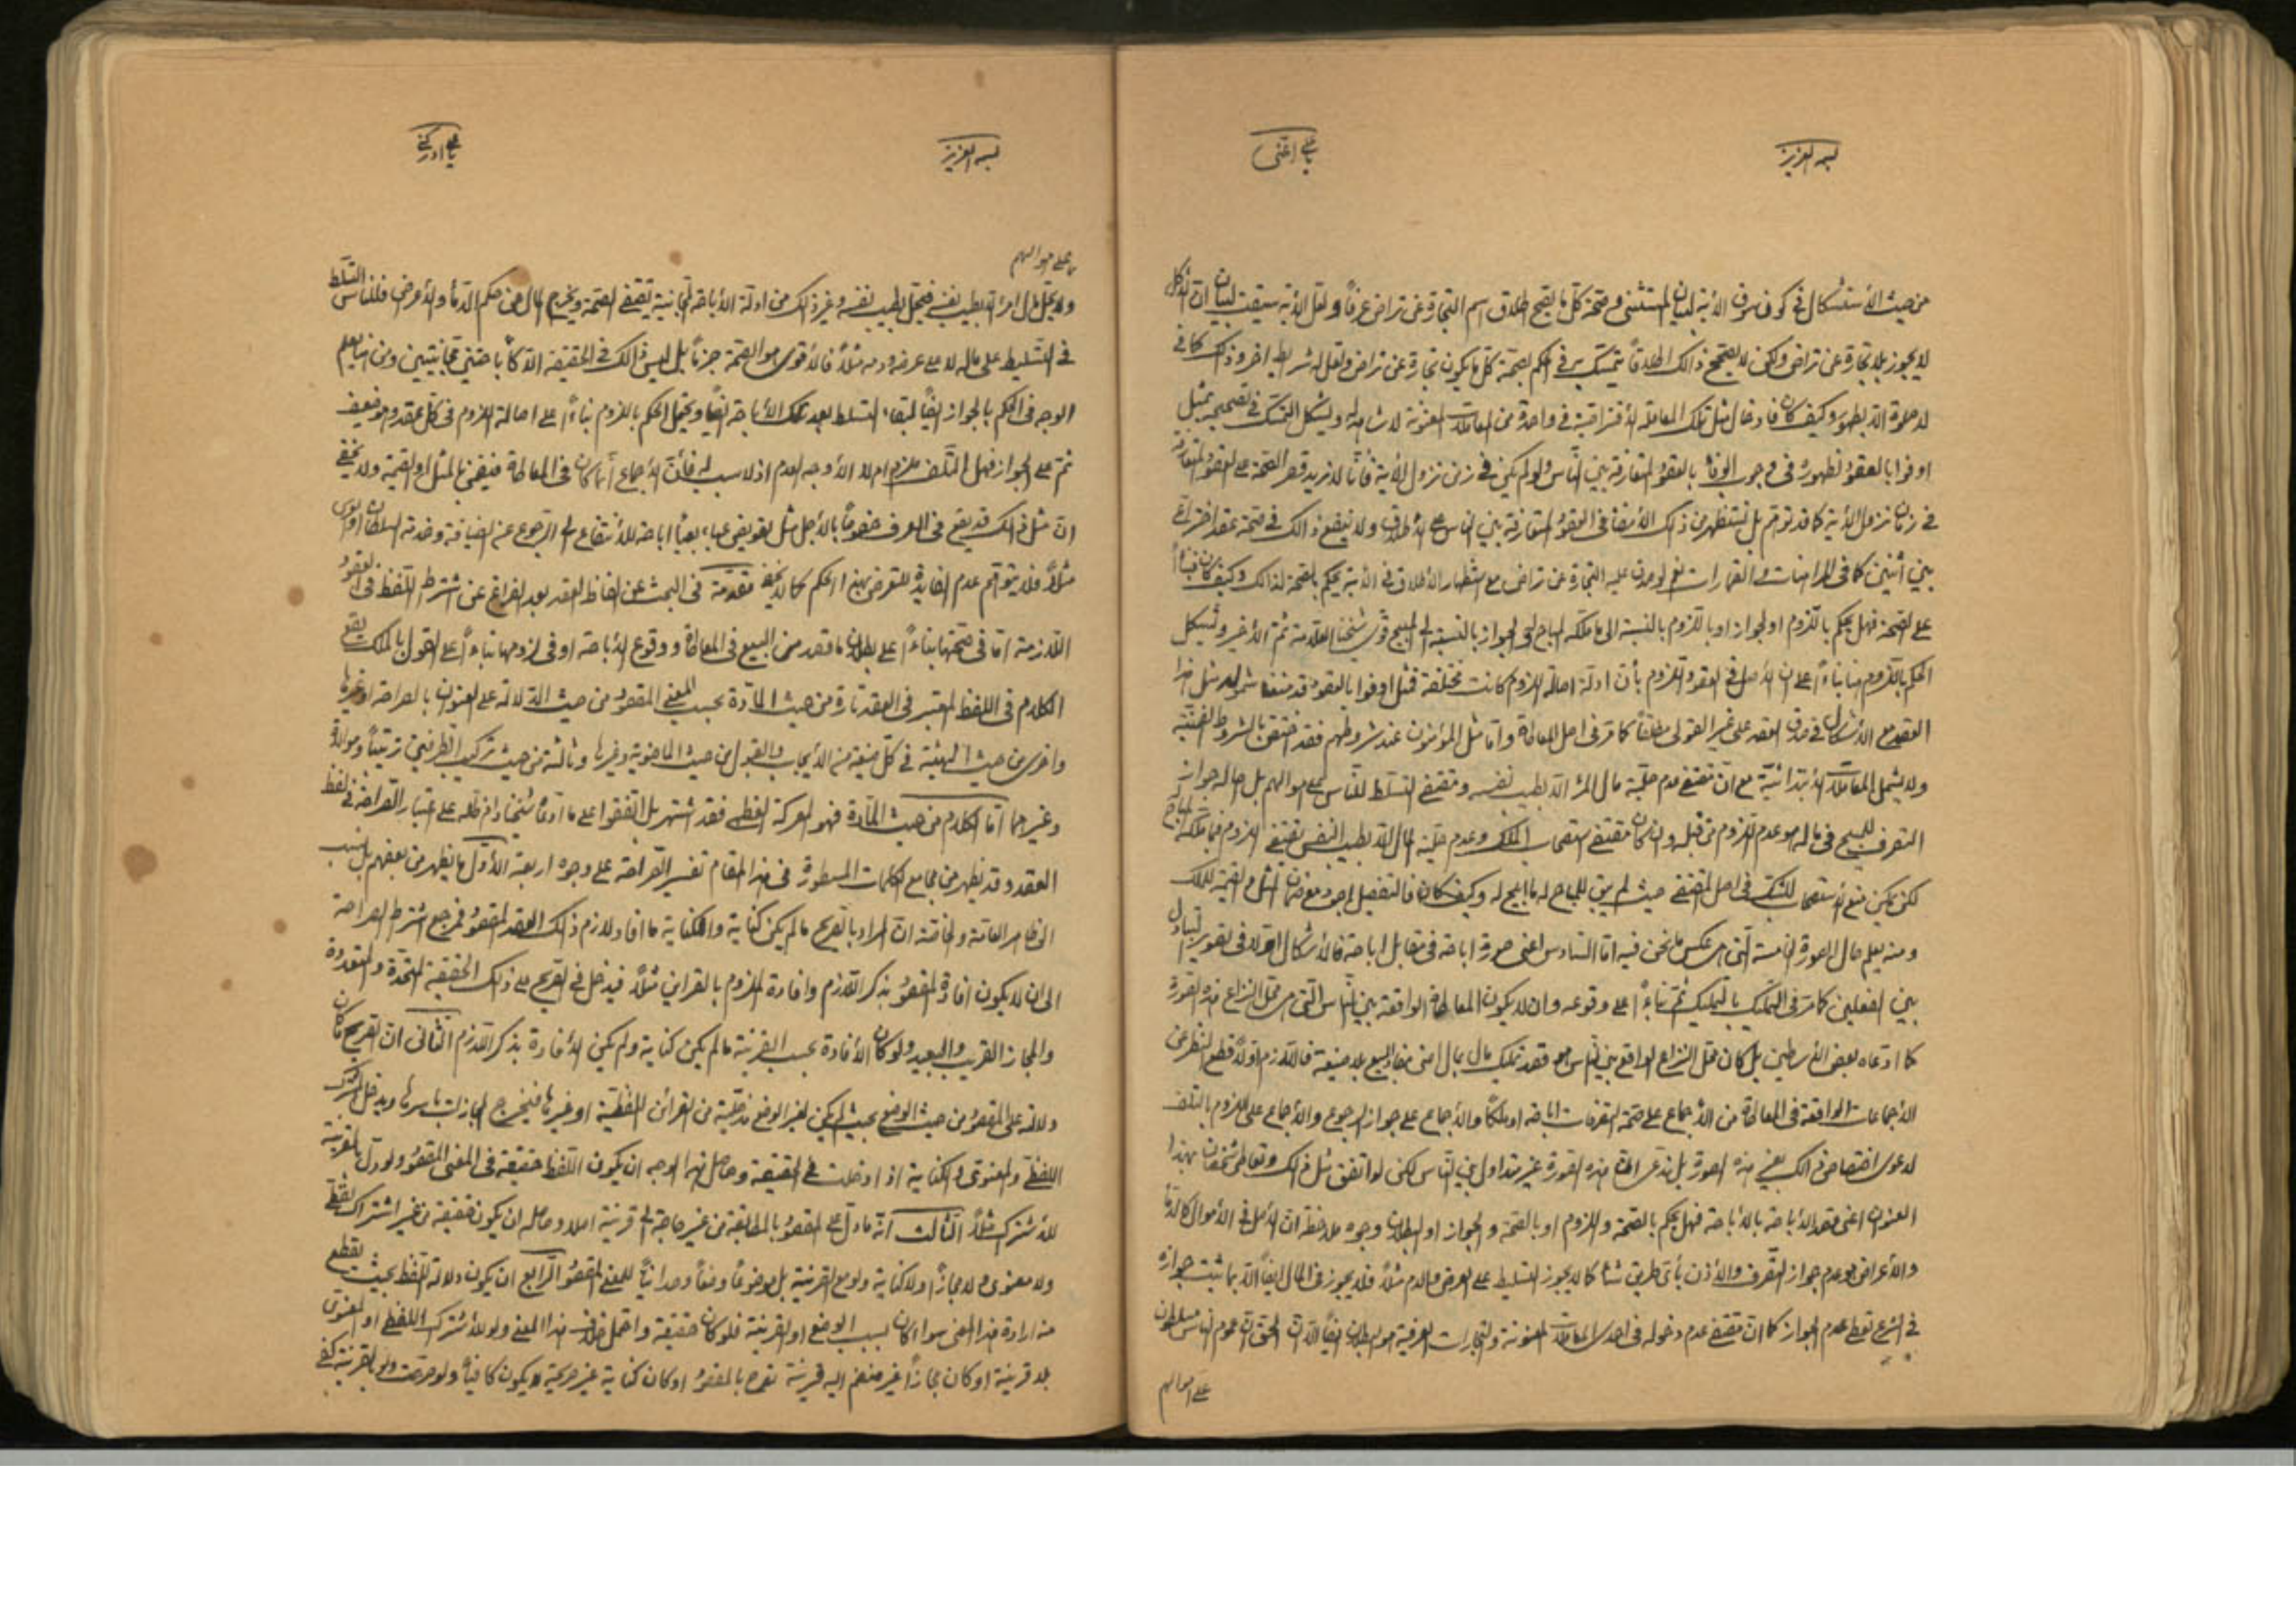 بسمه العزيز
يا علي اغثني
من حيث الأستشكال في كون سوق الأية لبيان المستثنى وصحة كل ما يصح اطلاق اسم التجارة عن تراض عرفاً ولعل الأية سيقت لبيان ان الأكل
لا يجوز بلا تجارة عن تراض ولكن لا يصحح ذالك اطلاقاً يتمسك به في الحكم بصحة كل ما يكون تجارة عن تراض ولعل له شرايط اخر وذلك كما في
لا صلوة الا بطهور وكيف كان فادخال مثل تلك المعاملة الأفتراقية في واحدة من المعاملات المعنونة لا شاهد له ويشكل التمسك في تصحيحه بمثل
اوفوا بالعقود لظهوره في وجوب الوفاء بالعقود المتعارفة بين الناس ولو لم يكن في زمن نزول الأية فأنا لا نريد قصر الصحة على العقود المتعارفة
في زمان نزول الأية كما قد توهم بل نستظهر من ذلك الأمضاء في العقود المتعارفة بين الناس على الأطلاق ولا ينفع ذالك في صحة عقد اخترع
بين أثنين كما في المراهنات والقمارات نعم لو صدق عليه التجارة عن تراض مع استظهار الأطلاق في الأية يحكم بالصحة لذالك وكيف كان فبناءً
على الصحة فهل يحكم باللزوم او الجواز او باللزوم بالنسبة الى ما ملكه المباح له والجواز بالنسبة الى المبيح قوى شيخنا العلامة ثم الأخير ويشكل
الحكم باللزوم هنا بناءً على ان الأصل في العقود اللزوم بأن ادلة اصالة اللزوم كانت مختلفة فمثل اوفوا بالعقود قد منعنا شموله لمثل هذا
العقد مع الأشكال في صدق العقد على غير القولى مطلقاً كما مر في اصل المعاطاة واما مثل المؤمنون عند شروطهم فقد اختص بالشروط الضمنية
ولا يشمل المعاملات الأبتدائية مع ان مقتضى عدم حلية مال المرء الا بطيب نفسه ومقتضى التسلط للناس على اموالهم بل اصالة جواز
التصرف للمبيح في ماله هو عدم اللزوم من قبله وان كان مقتضى استصحاب الملك وعدم حلية المال الا بطيب النفس يقتضى اللزوم فيما ملكه المباح له
لكن يمكن منع الأستصحاب للشك في اصل المقتضى حيث لم يبق للمباح له ما ابيح له وكيف كان فالتفصيل اجود مع ضمان المثل او القيمة للملك
ومنه يعلم حال الصورة الخامسة التي هي عكس ما نحن فيه اما السادس اعنى صورة اباحة في مقابل اباحة فالأشكال اولا في تصوير التبادل
بين الفعلين كما مر في التمليك بالتمليك ثم بناءً على وقوعه وان لا يكون المعاطاة الواقعة بين الناس التي هي محل النزاع هذه الصورة
كما ادعاه بعض الأساطين بل كان محل النزاع الواقع بين الناس هو قصد تمليك مال بمال اعنى مفاد البيع بلا صيغة فاللازم اولاً قطع النظر عن
الأجماعات الواقعة في المعاطاة من الأجماع على صحة التصرفات اباحة او ملكاً والأجماع على جواز الرجوع والأجماع على اللزوم بالتلف
لدعوى اختصاص ذالك بغير هذه الصورة بل ندعى ان هذه الصورة غير متداول بين الناس لكن لو اتفق مثل ذالك وتعاطى شخصان بهذا
العنوان اعنى قصد الأباحة بالأباحة فهل يحكم بالصحة واللزوم او بالصحة والجواز او البطلان وجوه ملاحظة ان الأصل في الأموال كالدماء
والأعراض هو عدم جواز التصرف والأذن بأى طريق شاء كما لا يجوز التسليط على العرض والدم مثلاً فلا يجوز في المال ايضاً الا بما يثبت جوازه
في الشرع تعطى عدم الجواز كما ان مقتضى عدم دخوله في احدى المعاملات المعنونة والتجارات العرفية هو البطلان ايضاً الا ان الحق ان عموم الناس مسلطون
على اموالهم
بسمه العزيز
يا علي ادركني
على اموالهم
ولا يحل مال امرء الا بطيب نفسه فيحل بطيب نفسه وغير ذالك من ادلة الأباحة المجانية يقتضى الصحة ويخرج المال عن حكم الدماء والأعراض فللناس التسلط
في التسليط على ماله لا على عرضه ودمه مثلاً فالأقوى هو الصحة جزماً بل ليس ذالك في الحقيقة الا كأباحتين مجانيتين ومن هنا يعلم
الوجه في الحكم بالجواز ايضاً لبقاء التسلط بعد تلك الأباحة ايضاً ويحتمل الحكم باللزوم بناءً على اصالة اللزوم في كل عقد وهو ضعيف
ثم على الجواز فهل التلف ملزم ام لا الأوجه العدم اذ لا سبب له فأن الأجماع انما كان في المعاطاة فيضمن بالمثل او القيمة ولا يخفى
ان مثل ذالك قد يقع في العرف خصوصاً بالأجل مثل تعويض عباء بعباء اباحة للأنتفاع الى الرجوع عن الضيافة وخدمة السلطان او المولى
مثلاً فلا يتوهم عدم الفايدة للتعرض بهذا الحكم كما لا يخفى مقدمة في البحث عن الفاظ العقد بعد الفراغ عن اشتراط اللفظ في العقود
اللازمة اما في صحتها بناءً على بطلان ما قصد من البيع في المعاطاة ووقوع الأباحة او في لزومها بناءً على القول بالملك يقع
الكلام في اللفظ المعتبر في العقد تارة من حيث المادة بحسب المعنى المقصود من حيث الدلالة على العنوان بالصراحة او غيرها
واخرى من حيث الهيئة في كل صيغة من الأيجاب والقبول من حيث الماضوية وغيرها وثالثة من حيث تركيب الطرفين ترتيباً وموالاة
وغيرهما اما الكلام من حيث المادة فهو المعركة العظمى فقد اشتهر بل اتفقوا على ما ادعاه شيخنا دام ظله على اعتبار الصراحة في لفظ
العقد وقد يظهر من مجامع الكلمات المسطورة في هذا المقام تفسير الصراحة على وجوه اربعة الأول ما يظهر من بعضهم بل نسب
الى ظاهر العامة والخاصة ان المراد بالصريح ما لم يكن كناية والكناية ما افاد لازم ذلك العقد المقصود فمرجع اشتراط الصراحة
الى ان لا يكون افادة المقصود بذكر اللازم وافادة الملزوم بالقرائن مثلاً فيدخل في الصريح على ذلك الحقيقة المتحدة والمتعددة
والمجاز القريب والبعيد ولو كان الأفادة بحسب القرينة ما لم يكن كناية ولم يكن الأفادة بذكر اللازم الثاني ان الصريح ما كان
دلالته على المقصود من حيث الوضع بحيث لم يكن لغير الوضع مدخلية من القرائن اللفظية او غيرها فيخرج المجازات باسرها ويدخل المشترك
اللفظي والمعنوي والكناية اذا ادخلت في الحقيقة وحاصل هذا الوجه ان يكون اللفظ حقيقة في المعنى المقصود ولو دل بالقرينة
للأشتراك مثلاً الثالث انه ما دل على المقصود بالمطابقة من غير حاجة الى قرينة اصلا وحاصله ان يكون حقيقة من غير اشتراك لفظي
ولا معنوي ولا مجازاً ولا كناية ولو مع القرينة بل موضوعاً وضعاً وحدانياً للمعنى المقصود الرابع ان يكون دلالة اللفظ بحيث يقطع
منه ارادة هذا المعنى سواء كان بسبب الوضع او القرينة فلو كان حقيقة واحتمل خلاف هذا المعنى ولو للأشتراك اللفظي او المعنوي
بلا قرينة او كان مجازاً غير منضم اليه قرينة تصرح بالمقصود او كان كناية غير صريحة لا يكون كافياً ولو صرحت ولو بالقرينة كفى